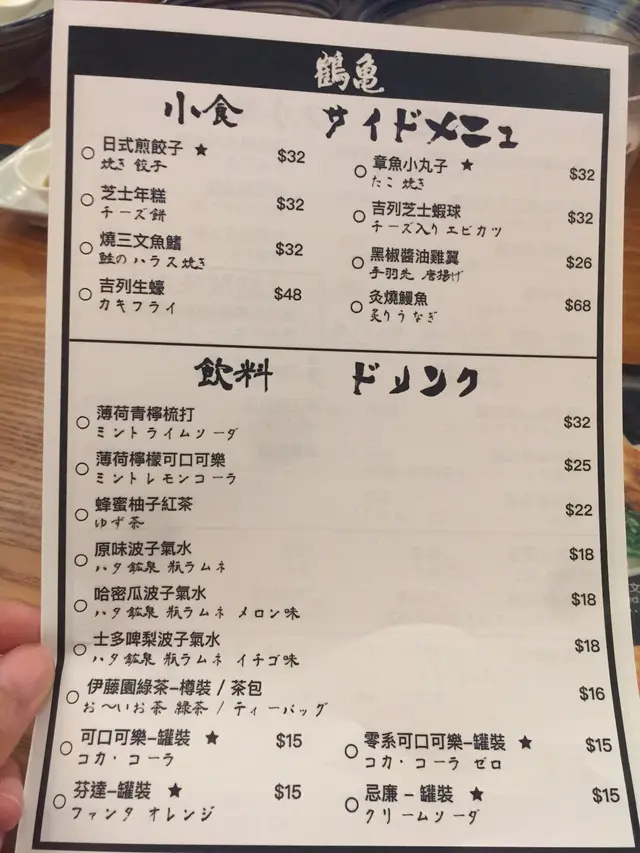 鶴亀
小食 サイドメニュ
○ 日式煎餃子 ★ $32
焼き 餃子
○ 芝士年糕 $32
チーズ餅
○ 燒三文魚鰭 $32
鮭のハラス焼き
○ 吉列生蠔 $48
カキフライ
○ 章魚小丸子 ★ $32
たこ 焼き
○ 吉列芝士蝦球 $32
チーズ入り エビカツ
○ 黑椒醬油雞翼 $26
手羽先 唐揚げ
○ 灸燒鰻魚 $68
炙りうなぎ
飲料 ドリンク
○ 薄荷青檸梳打 $32
ミントライムソーダ
○ 薄荷檸檬可口可樂 $25
ミントレモンコーラ
○ 蜂蜜柚子紅茶 $22
ゆず茶
○ 原味波子氣水 $18
ハタ鉱泉 瓶ラムネ
○ 哈密瓜波子氣水 $18
ハタ鉱泉 瓶ラムネ メロン味
○ 士多啤梨波子氣水 $18
ハタ鉱泉 瓶ラムネ イチゴ味
○ 伊藤園綠茶–樽裝 / 茶包 $16
お〜いお茶 緑茶 / ティーバッグ
○ 可口可樂–罐裝 ★ $15
コカ・コーラ
○ 零系可口可樂–罐裝 ★ $15
コカ・コーラ ゼロ
○ 芬達–罐裝 ★ $15
ファンタ オレンジ
○ 忌廉 – 罐裝 ★ $15
クリームソーダ